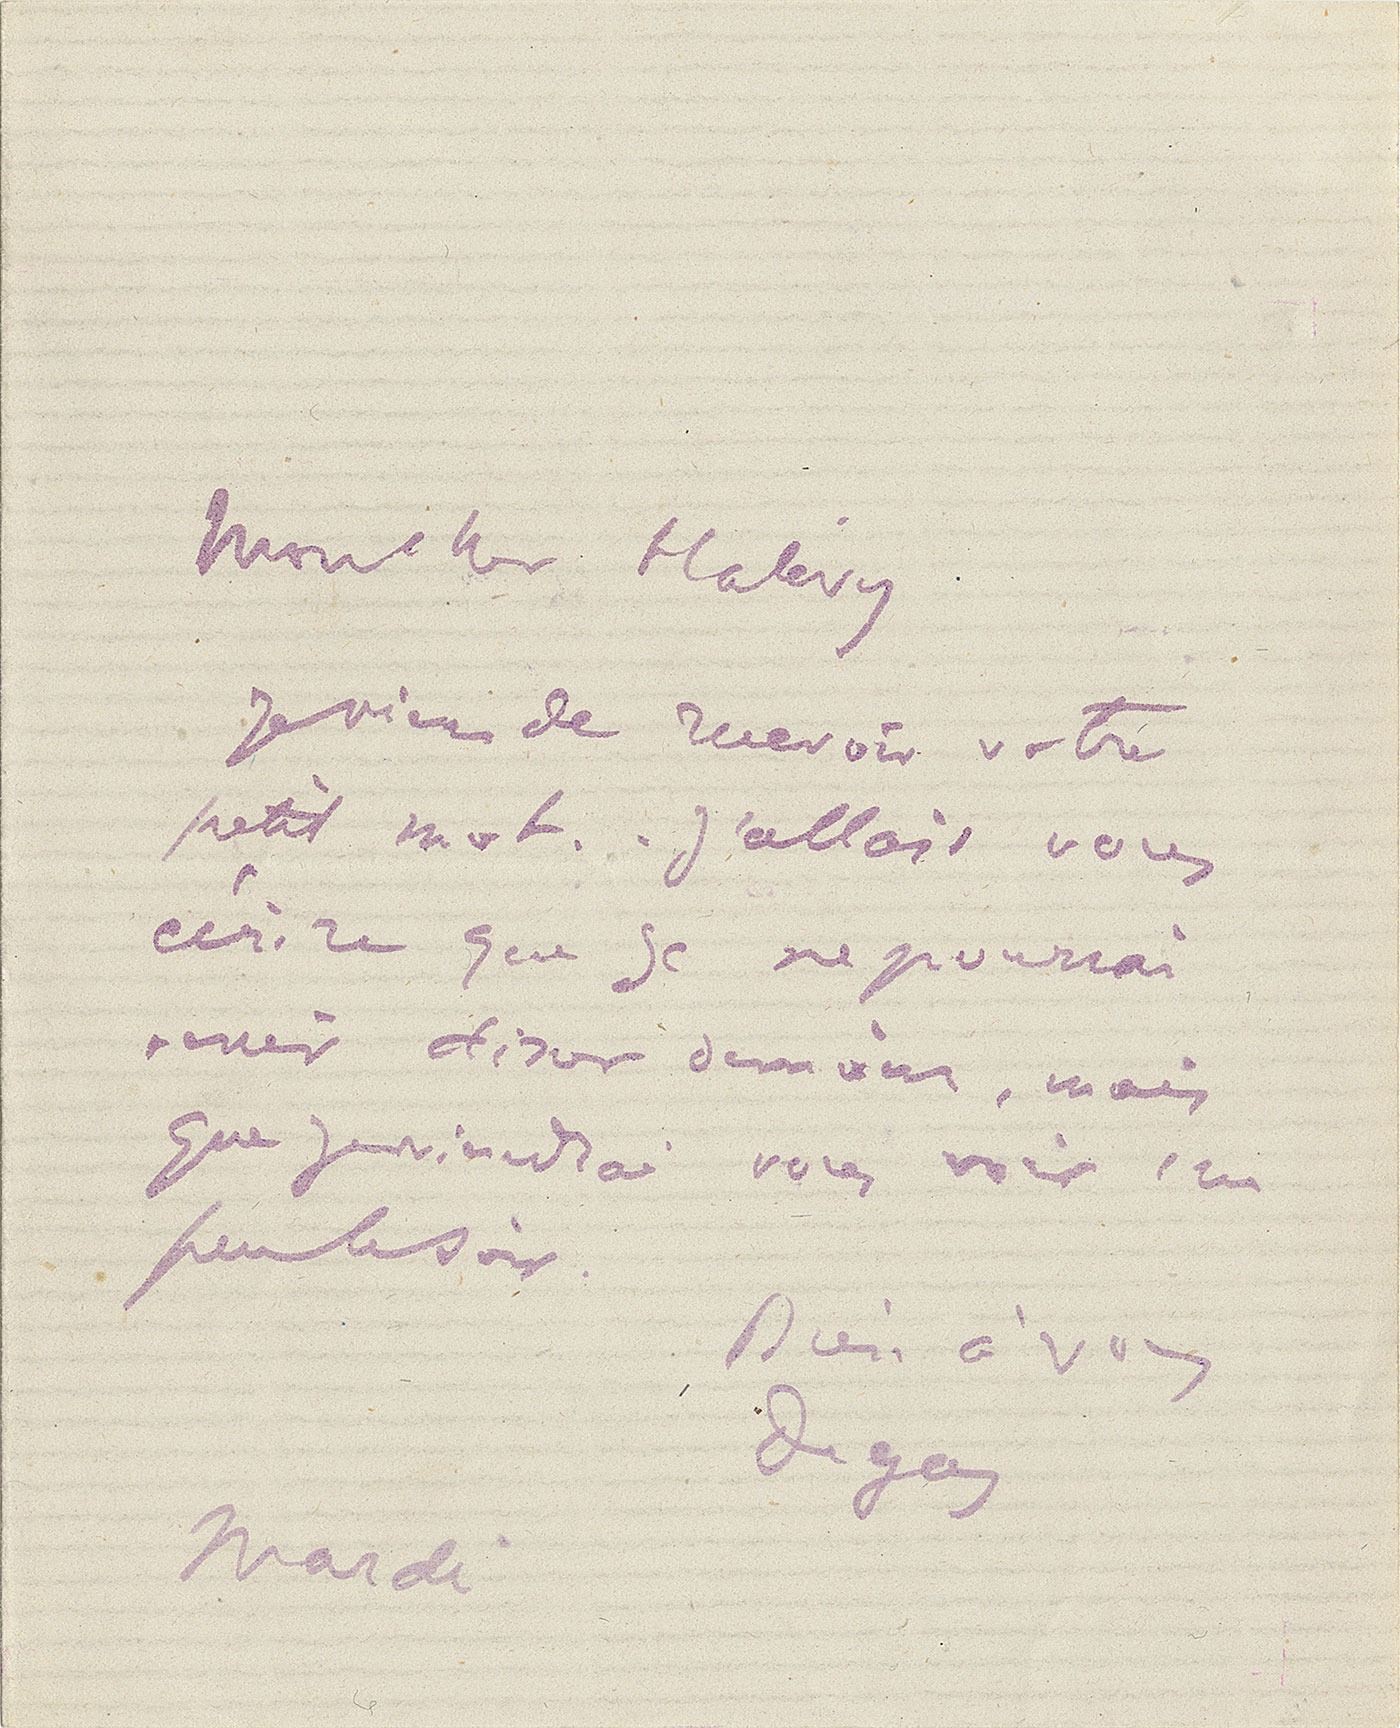 Mon cher Halévy
Je viens de recevoir votre
petit mot. . J'allais vous
écrire que je ne pourrai
venir diner demain, mais
que je viendrai vous voir un
peu le soir.
Bien à vous
Degas
Mardi